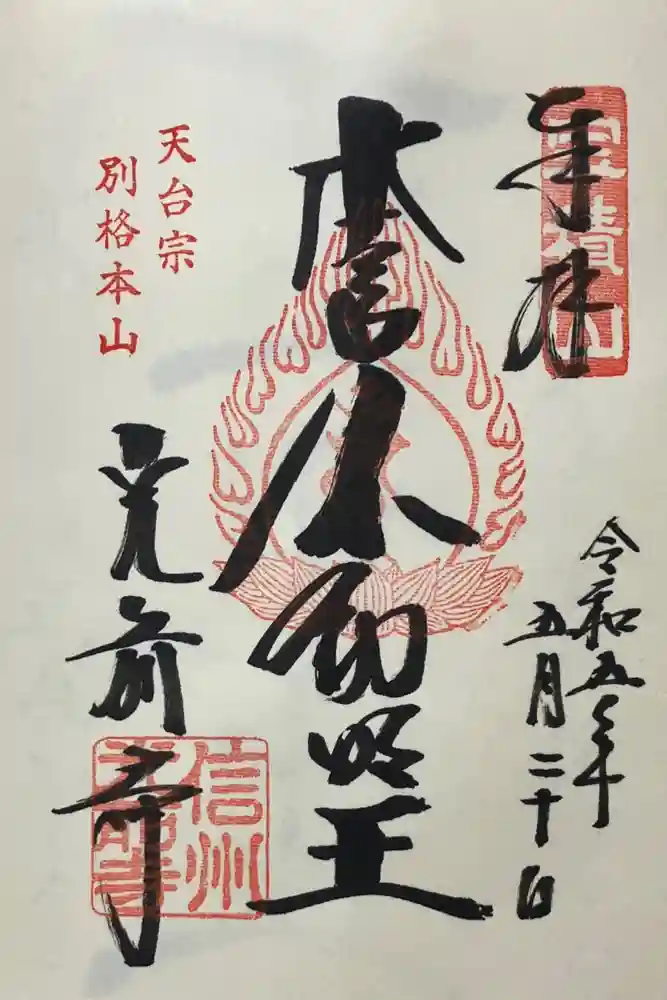 奉拝
寶積山
令和五年
五月二十日
本尊不動明王
天台宗
別格本山
光前寺
信州
光前寺